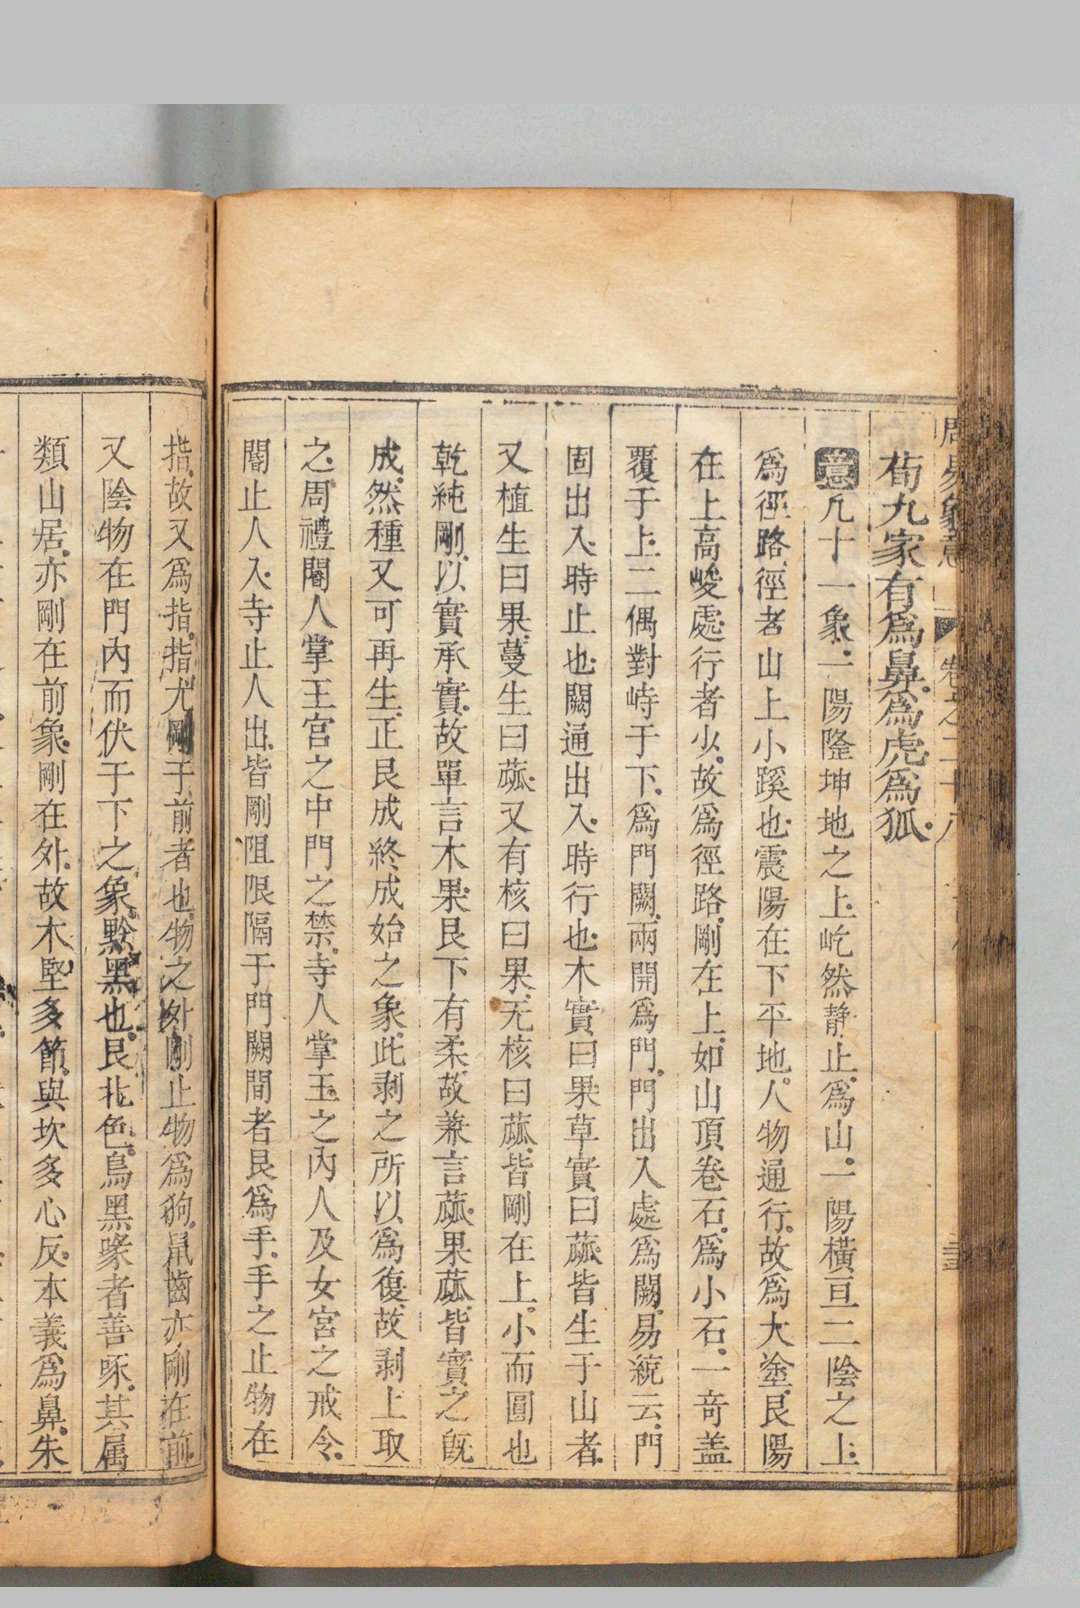 周易象意 卷之二十八
荀九家有爲鼻爲虎爲狐
意凡十一象一陽隆坤地之上屹然静止爲山一陽橫亘二陰之上
爲徑路徑者山上小蹊也震陽在下平地人物通行故爲大塗艮陽
在上高峻處行者少故爲徑路剛在上如山頂卷石爲小石一竒盖
覆于上二偶對峙于下爲門闕兩開爲門門出入處爲闕易統云門
固出入時止也闕通出入時行也木實曰果草實曰蓏皆生于山者
又植生曰果蔓生曰蓏又有核曰果无核曰蓏皆剛在上小而圓也
乾純剛以實承實故單言木果艮下有柔故兼言蓏果蓏皆實之旣
成然種又可再生正艮成終成始之象此剥之所以爲復故剥上取
之周禮閽人掌王宮之中門之禁寺人掌王之內人及女宮之戒令
閽止人入寺止人出皆剛阻限隔于門闕間者艮爲手手之止物在
指故又爲指指尤剛于前者也物之外剛止物爲狗鼠齒亦剛在前
又陰物在門內而伏于下之象黔黑也艮北色鳥黑喙者善啄其属
類山居亦剛在前象剛在外故木堅多節與坎多心反本義爲鼻朱